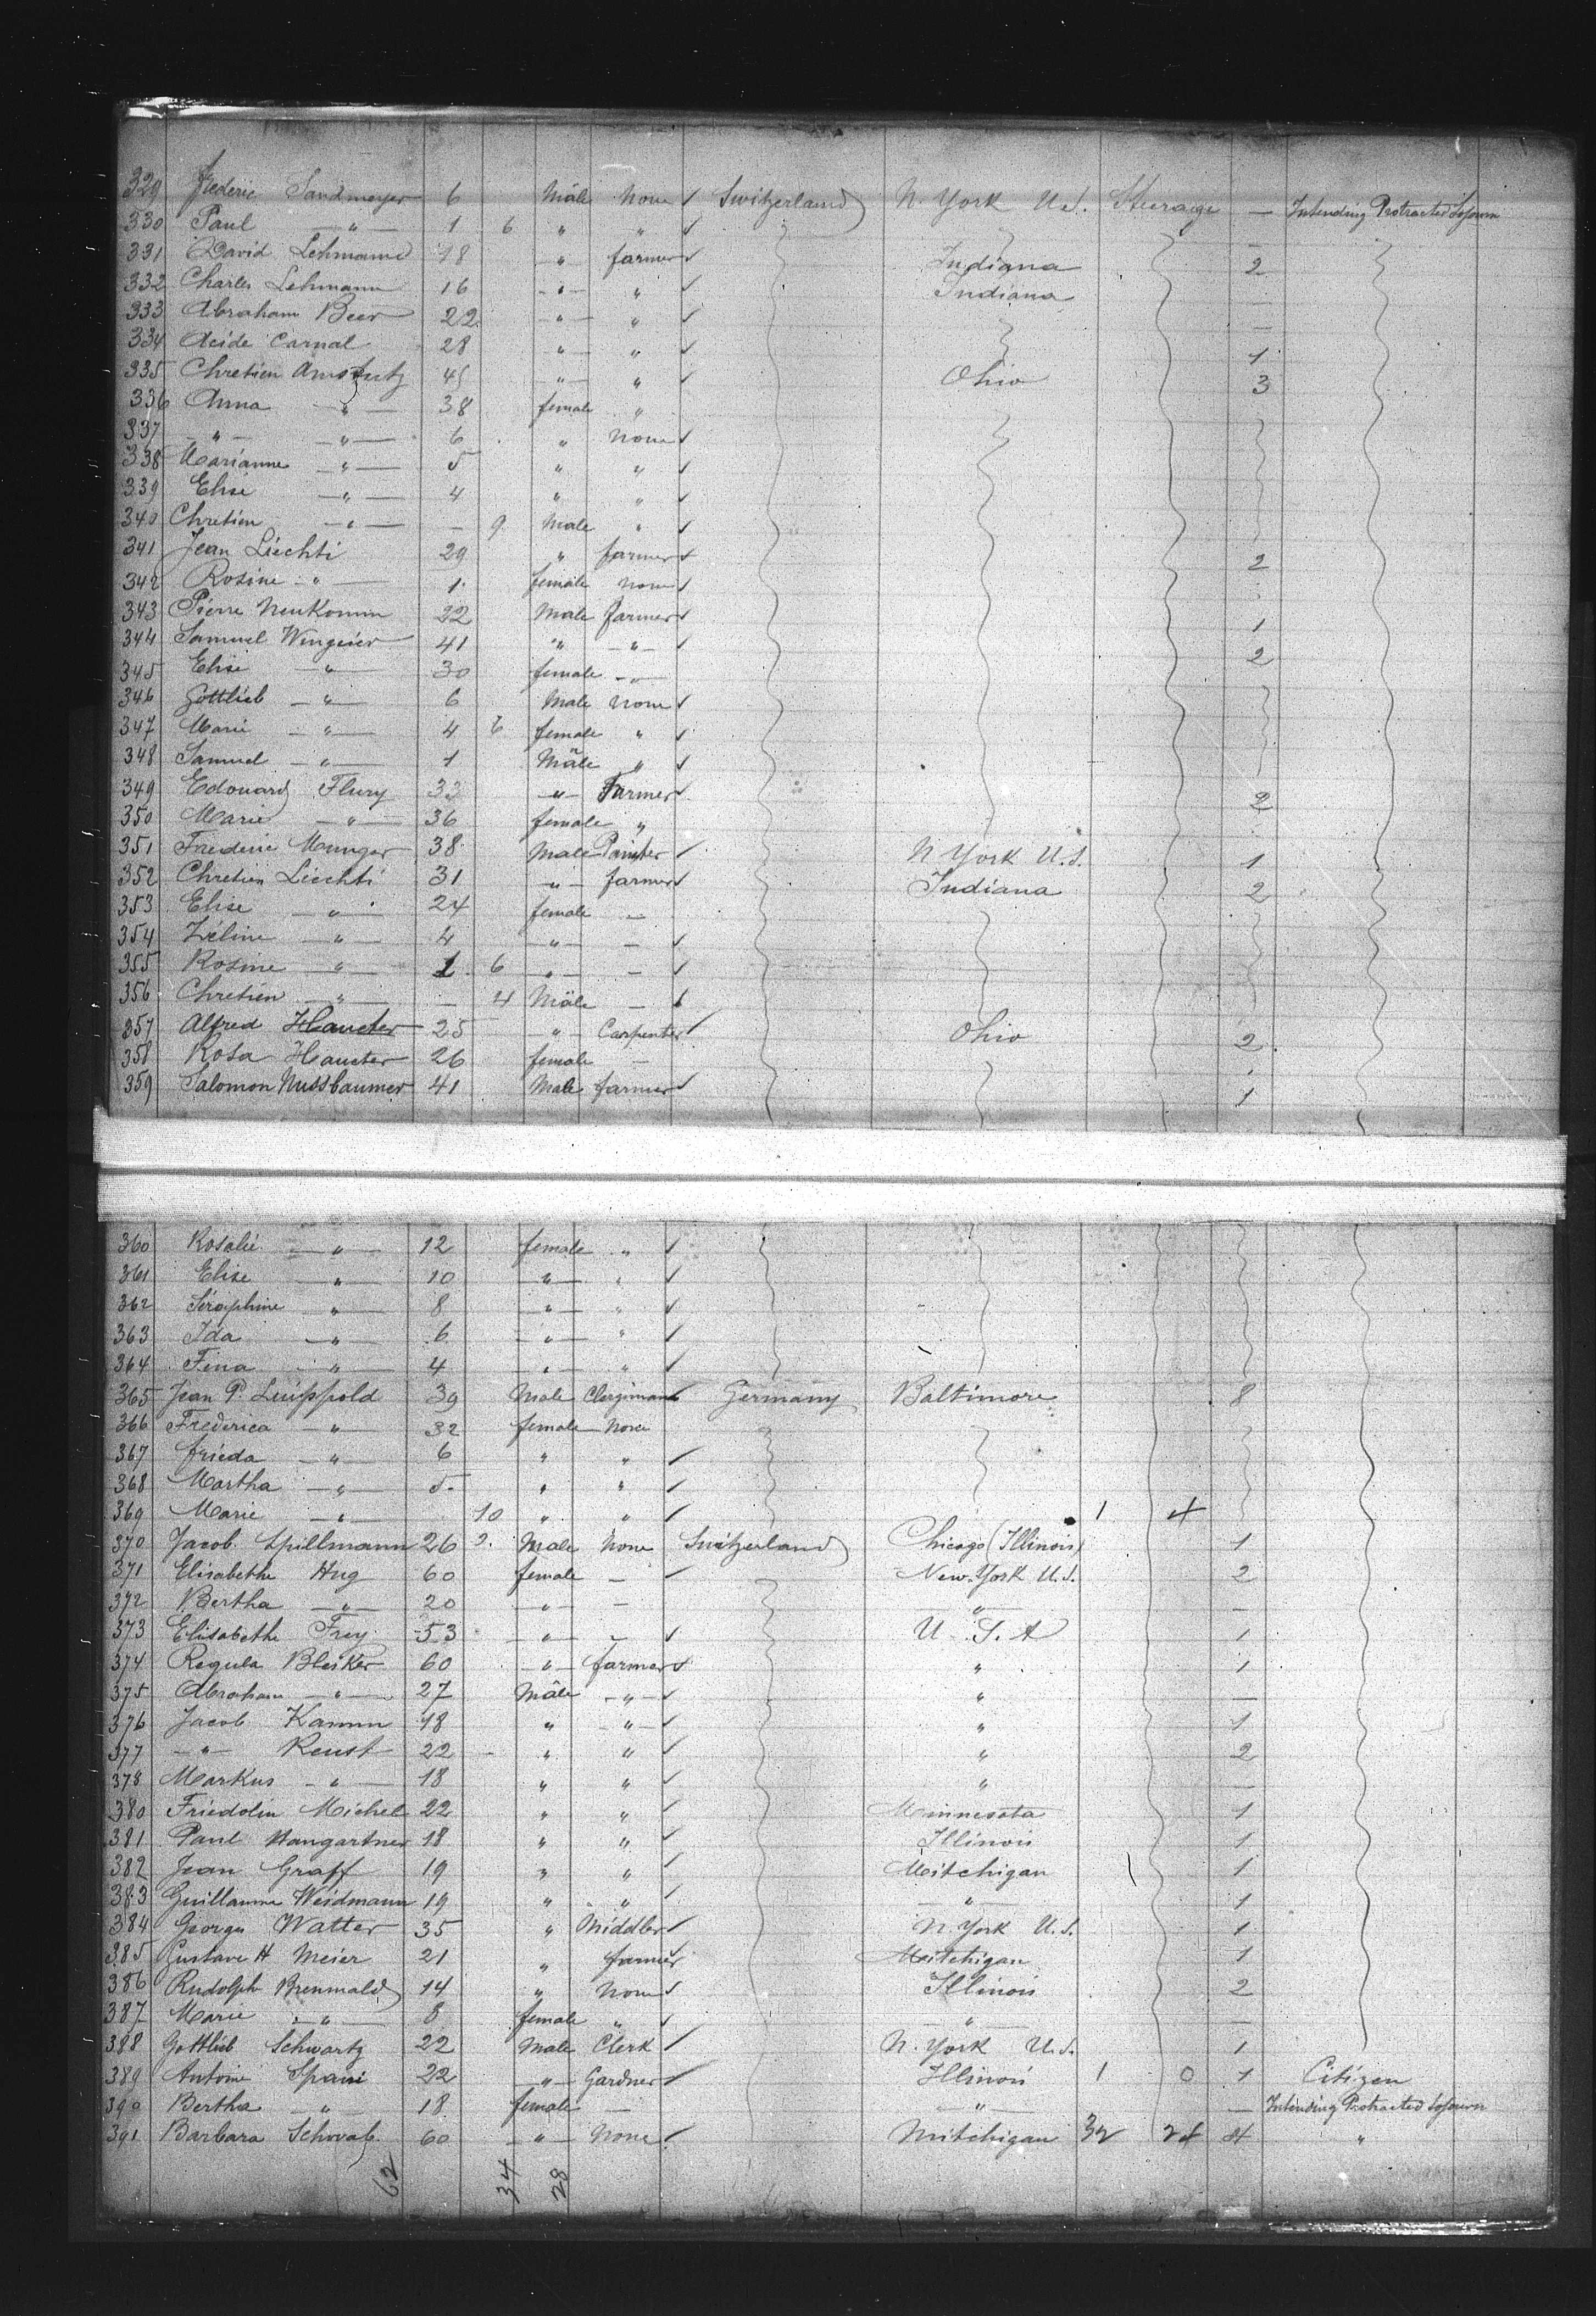 329 Frederic Sandmeyer 6 Male None ✓ Switzerland N. York U.S. Steerage — Intending Protracted Sojourn
330 Paul —"— 1 6 " " ✓ —
331 David Lehmann 18 —"— farmer ✓ Indiana 2
332 Charles Lehmann 16 —"— " ✓ Indiana —
333 Abraham Beer 22 —"— " ✓ —
334 Acide Carnal 28 —"— " ✓ 1
335 Chretien Amstutz 45 —"— " ✓ Ohio 3
336 Anna —"— 38 female "
337 —"— —"— 6 " None ✓
338 Marianne —"— 5 " " ✓
339 Elise —"— 4 " " ✓
340 Chretien —"— — 9 Male " ✓
341 Jean Liechti 29 " farmer ✓ 2
342 Rosine —"— 1 female None ✓
343 Pierre Neukomm 22 Male farmer ✓ 1
344 Samuel Wingeier 41 " —"— ✓ 2
345 Elise —"— 30 female —"—
346 Gottlieb —"— 6 Male None ✓
347 Marie —"— 4 6 female " ✓
348 Samuel —"— 1 Male " ✓
349 Edouard Flury 33 —"— Farmer ✓ 2
350 Marie —"— 36 female "
351 Frederic Munger 38 Male Painter ✓ N York U.S. 1
352 Chretien Liechti 31 —"— farmer ✓ Indiana 2
353 Elise —"— 24 female —
354 Zéline —"— 4 —"— — ✓
355 Rosine —"— 1 6 —"— — ✓
356 Chretien —"— — 4 Male — ✓
357 Alfred Haueter 25 —"— Carpenter ✓ Ohio 2
358 Rosa Haueter 26 female —
359 Salomon Nussbaumer 41 Male farmer ✓ 1
360 Rosalie —"— 12 female " ✓
361 Elise —"— 10 —"— " ✓
362 Séraphine —"— 8 —"— " ✓
363 Ida —"— 6 —"— " ✓
364 Fina —"— 4 —"— " ✓
365 Jean P. Luippold 39 Male Clergiman Germany Baltimore 8
366 Frederica —"— 32 female None
367 frieda —"— 6 " " ✓
368 Martha —"— 5 " " ✓
369 Marie —"— 10 " " ✓ 1 4
370 Jacob Spillmann 26 Male None Switzerland Chicago (Illinois) 1
371 Elisabethe Hug 60 female — ✓ New-York U.S. 2
372 Bertha —"— 20 —"— — —"— —
373 Elisabethe Frey 53 —"— — ✓ U. S. A 1
374 Regula Bleiker 60 —"— farmer ✓ " 1
375 Abraham —"— 27 Male —"— ✓ " —
376 Jacob Kamm 18 " —"— ✓ " 1
377 —"— Reust 22 " " ✓ " 2
378 Markus —"— 18 " " ✓ " —
380 Friedolin Michel 22 " " ✓ Minnesota 1
381 Paul Hangartner 18 " " ✓ Illinois 1
382 Jean Graff 19 " " ✓ Mitchigan 1
383 Guillaume Weidmann 19 " " ✓ —"— 1
384 Georges Watter 35 " Middler ✓ N York U.S. 1
385 Gustave H Meier 21 " farmer Mitchigan 1
386 Rudolph Brennwald 14 " None ✓ Illinois 2
387 Marie —"— 8 female " ✓ —"— —
388 Gottlieb Schwartz 22 Male Clerk ✓ N. York U.S. 1
389 Antoine Spani 22 —"— Gardner ✓ Illinois 1 0 1 Citizen
390 Bertha —"— 18 female — —"— — Intending Protracted Sojourn
391 Barbara Schwab 60 —"— None ✓ Mitchigan 32 28 4 "
62 34 28